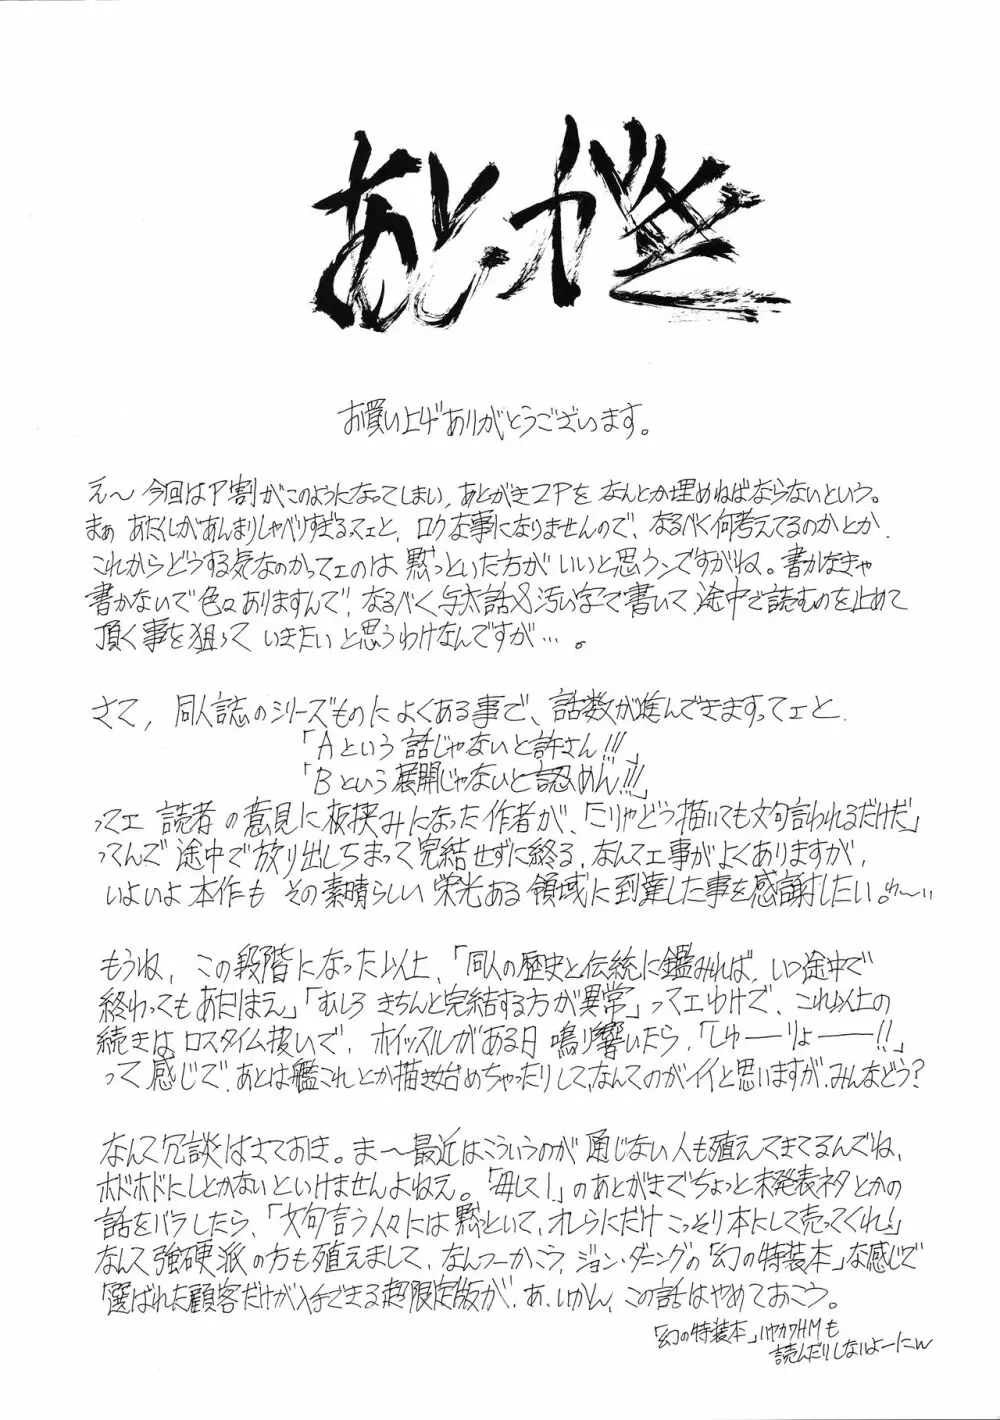 あとがき
お買い上げありがとうございます。
え〜今回はP割がこのようになってしまい、あとがき2Pをなんとか埋めねばならないという。
まぁあたくしがあんまりしゃべりすぎるてェと、ロクな事になりませんので、なるべく何考えてるのかとか
これからどうする気なのかってェのは黙っといた方がいいと思うンですがね。書かなきゃ
書かないで色々ありますんで、なるべく与太話&汚い字で書いて途中で読むのを止めて
頂く事を狙っていきたいと思うわけなんですが…。
さて、同人誌のシリーズものによくある事で、話数が進んできますってェと、
「Aという話じゃないと許さん!!!」
「Bという展開じゃないと認めん!!!」
ってェ読者の意見に板挟みになった作者が、「こりゃどう描いても文句言われるだけだ」
ってんで途中で放り出しちまって完結せずに終る、なんてェ事がよくありますが、
いよいよ本作もその素晴らしい栄光ある領域に到達した事を感謝したい。れ〜い
もうね、この段階になった以上、「同人の歴史と伝統に鑑みれば、いつ途中で
終わってもあたりまえ」「むしろきちんと完結する方が異常」ってェわけで、これ以上の
続きはロスタイム扱いで、ホイッスルがある日鳴り響いたら、「しゅーりょー!!」
って感じで、あとは艦これとか描き始めちゃったりして、なんてのがイイと思いますが、みんなどう?
なんて冗談はさておき。ま〜最近はこういうのが通じない人も殖えてきてるんでね、
ホドホドにしとかないといけませんよねえ。「毎して1」のあとがきでちょっと未発表ネタとかの
話をバラしたら、「文句言う人々には黙っといて、オレらにだけこっそり本にして売ってくれ!」
なんて強硬派の方も殖えまして、なんつーかこう、ジョン・ダニングの「幻の特装本」な感じで
「選ばれた顧客だけが入手できる超限定版が、あ、いかん、この話はやめておこう。
「幻の特装本」ハヤカワHMも
読んだりしないよーにw